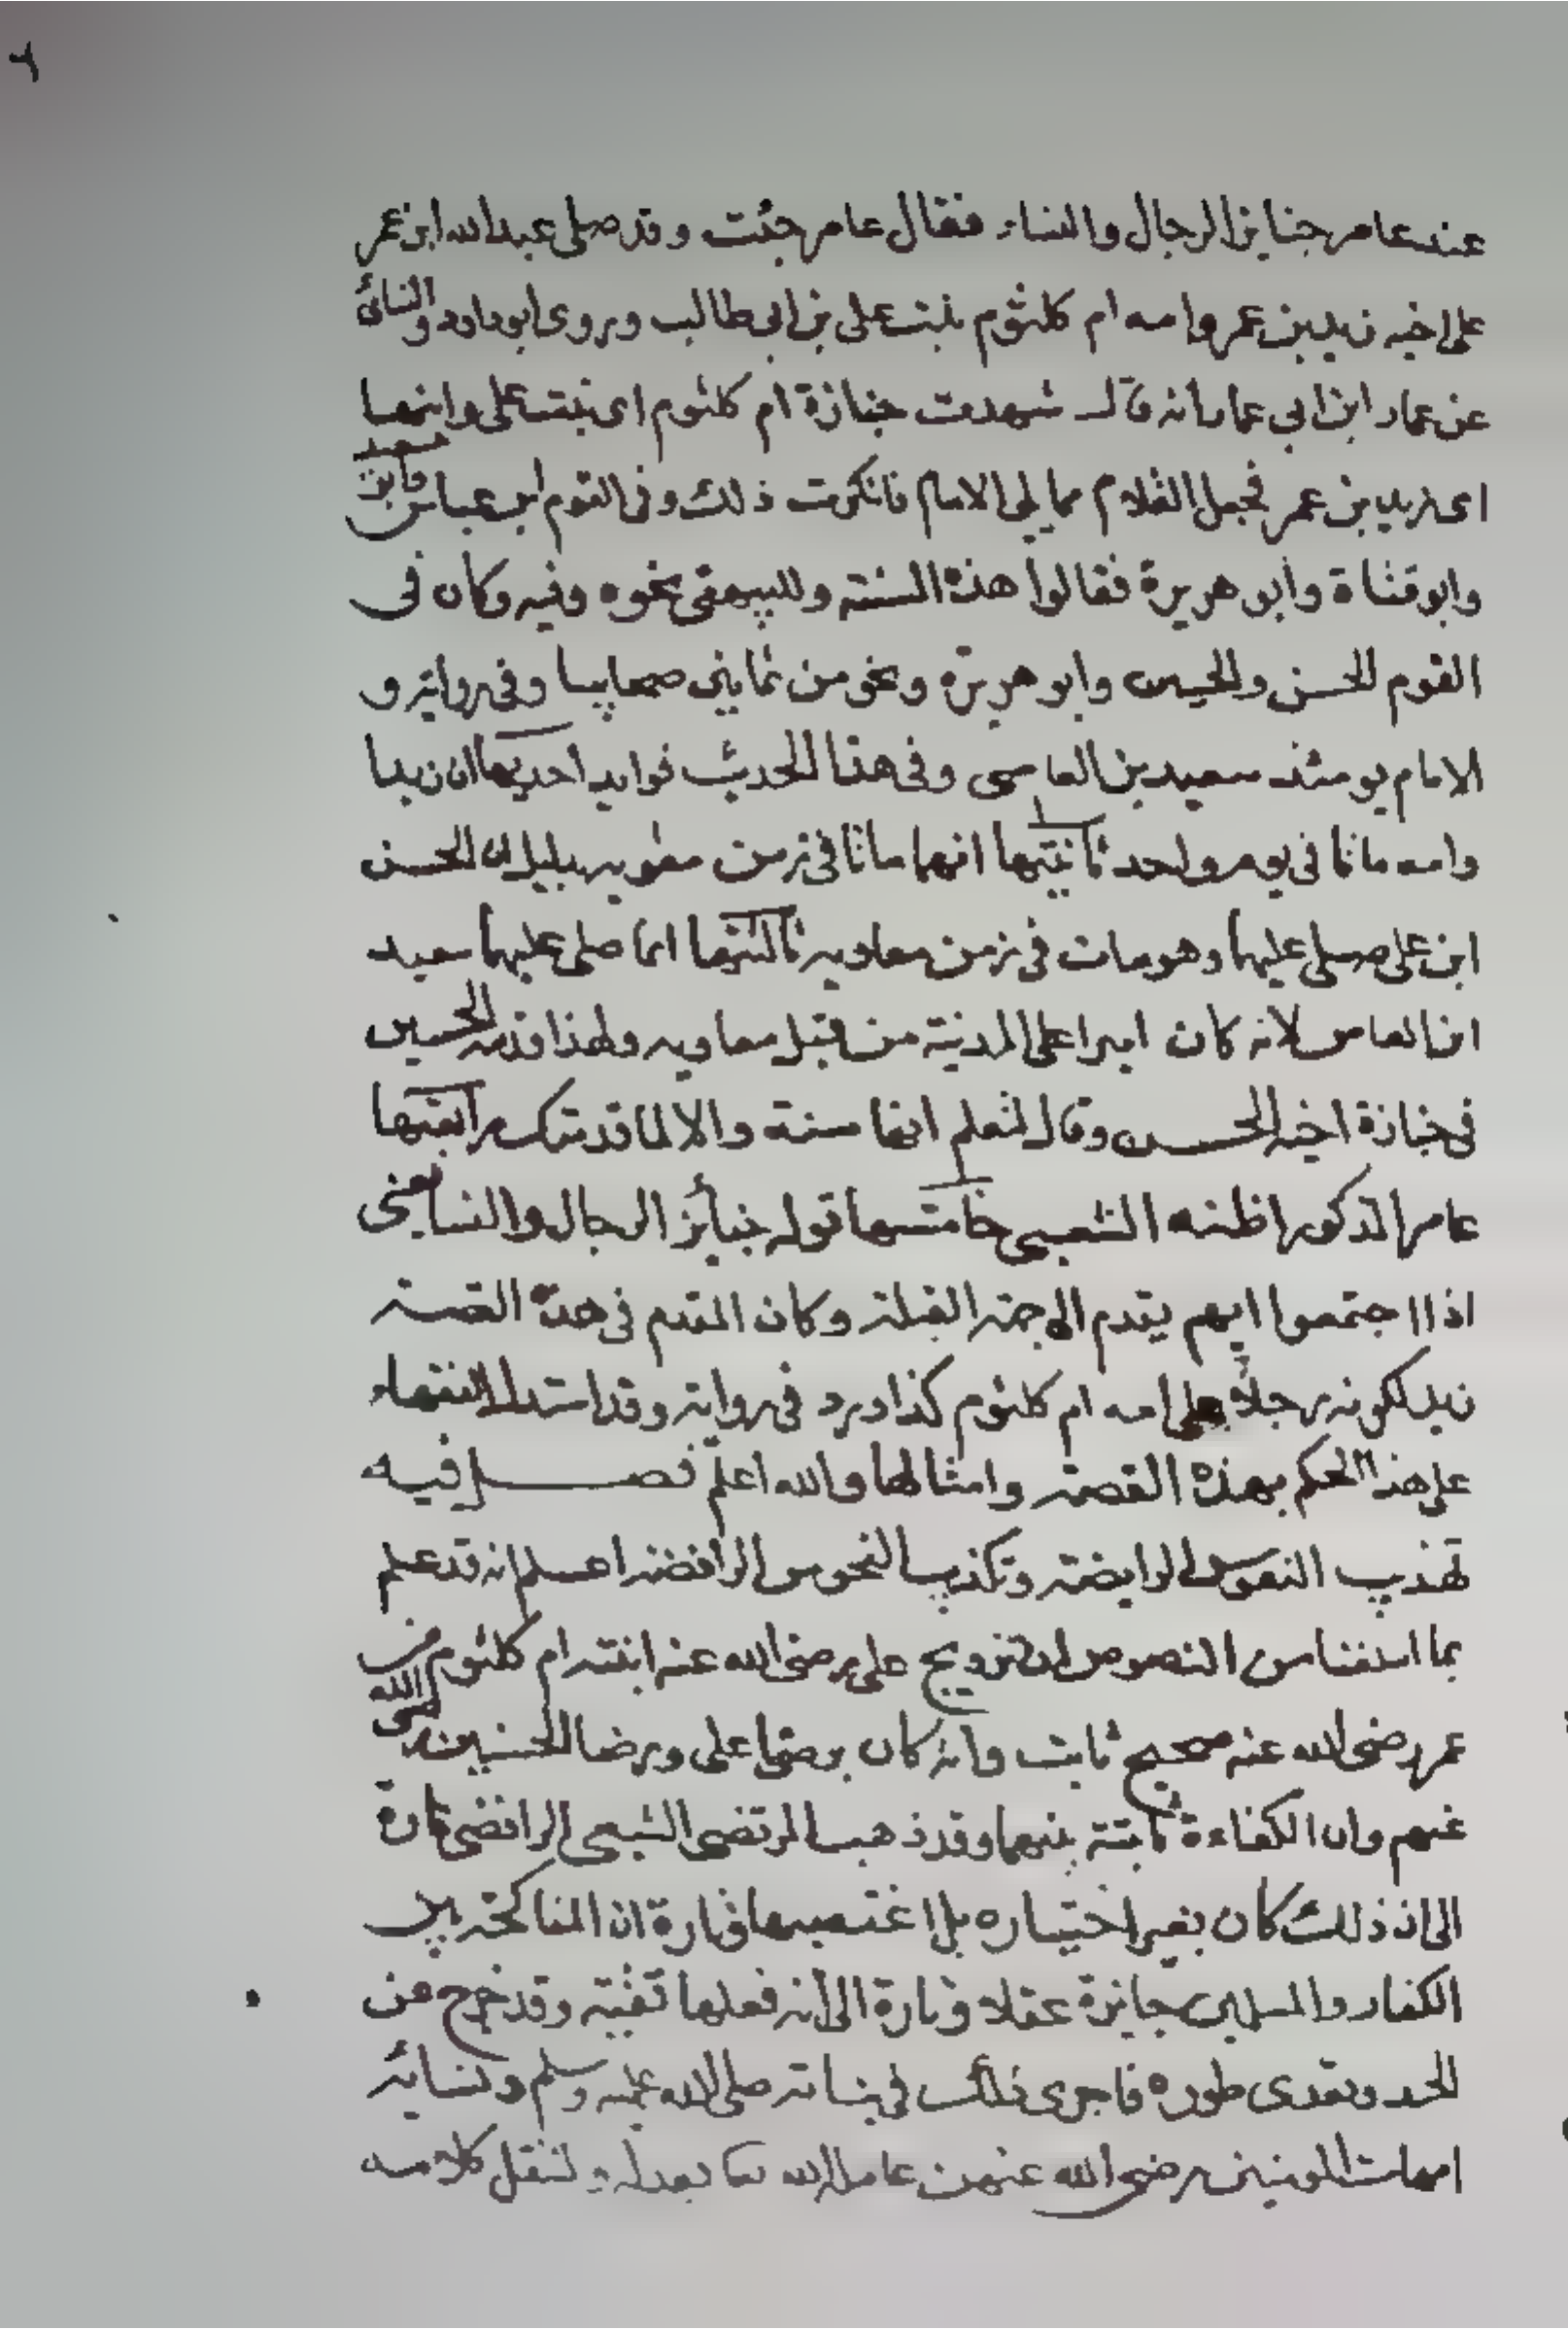 ٦
عند عامر جنايز الرجال والنساء فقال عامر جئت وقد صلى عبد الله ابن عمر
على اخيه زيد بن عمر وامه ام كلثوم بنت علي بن ابي طالب وروى ابو داود والنسائي
عن عمار ابن ابي عمار انه قال شهدت جنازة ام كلثوم اى بنت علي وابنها
اى زيد بن عمر فجعل الغلام مما يلى الامام فانكرت ذلك وفى القوم ابن عباس وابو سعيد
وابو قتادة وابو هريرة فقالوا هذه السنة وللبيهقى نحوه وفيه وكان فى
القوم الحسن والحسين وابو هريرة ونحو من ثمانين صحابيا وفى رواية و
الامام يومئذ سعيد بن العاصى وفى هذا الحديث فوايد احديها ان زيدا
وامه ماتا فى يوم واحد ثانيتها انهما ماتا فى زمن معويه بدليل ان الحسن
ابن على صلى عليهما وهو مات فى زمن معاويه ثالثتها انما صلى عليهما سعيد
ابن العاص لانه كان اميرا على المدينة من قبل معاويه ولهذا قدمه الحسين
فى جنازة اخيه الحسن وقال لتعلم انها سنة والا لما قدمتك رابعتها
عامر المذكور اظنه الشعبى خامستها قوله جنائز الرجال والنسا يعنى
اذا اجتمعوا ايهم يقدم الى جهة القبلة وكان المقدم فى هذه القصة
زيد لكونه رجلا على امه ام كلثوم كذا ورد فى رواية وقد استدل الفقهاء
على هذا الحكم بهذه القصة وامثالها والله اعلم فصل فيه
تهذيب النفوس الرايضة وتكذيب النحوس الرافضه اعلم انه قد علم
بما اسلفنا من النصوص ان تزويج على رضى الله عنه ابنته ام كلثوم من
عمر رضى الله عنه صحيح ثابت وانه كان برضا على ورضا الحسنين رضى الله
عنهم وان الكفاءة ثابتة بينهما وقد ذهب المرتضى الشيعى الرافضى تارة
الى ان ذلك كان بغير اختياره بل اغتصبها وتارة ان المناكحة بين
الكفار والمسلمين جايزة عقلا وتارة الى انه فعلها تقية وقد خرج عن
الحد وتعدى طوره فاجرى ذلك فى بناته صلى الله عليه وسلم ونسائه
امهات المومنين رضى الله عنهن عامله الله بما بعدله ولننقل كلامه